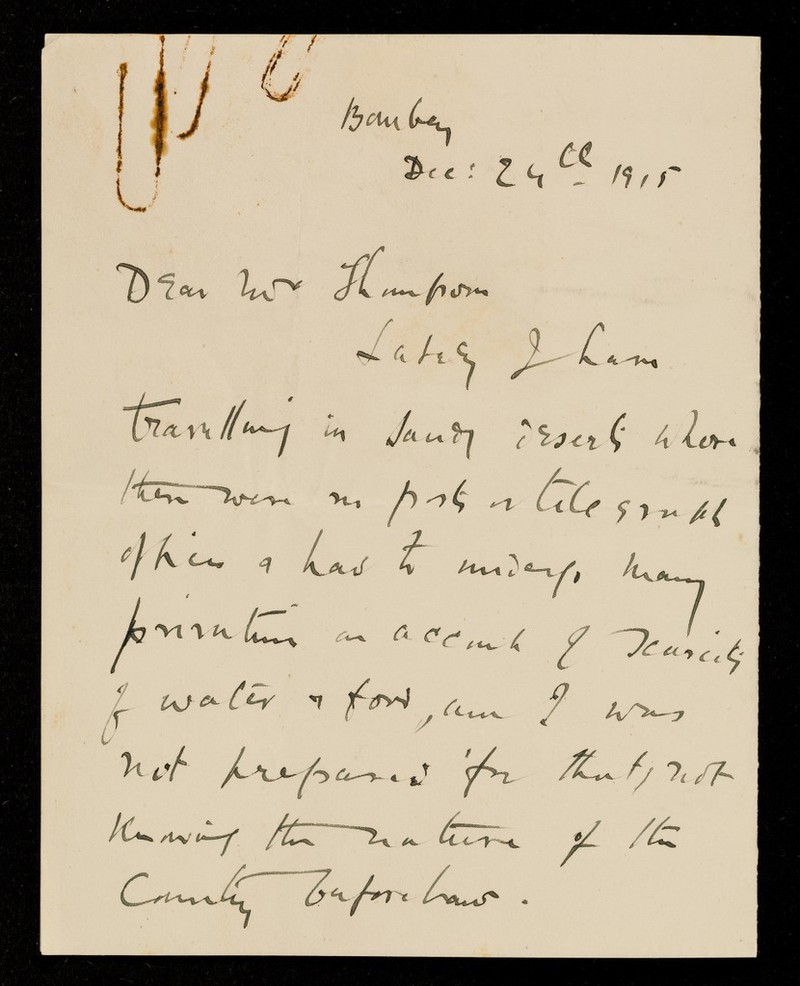 Bombay
Dec: 24th 1915
Dear Mr Thompson
Lately I have
travelling in sandy deserts where
there were no posts or telegraph
offices & had to undergo many
privations on account of scarcity
of water & food, and I was
not prepared for that, not
knowing the nature of the
Country beforehand.